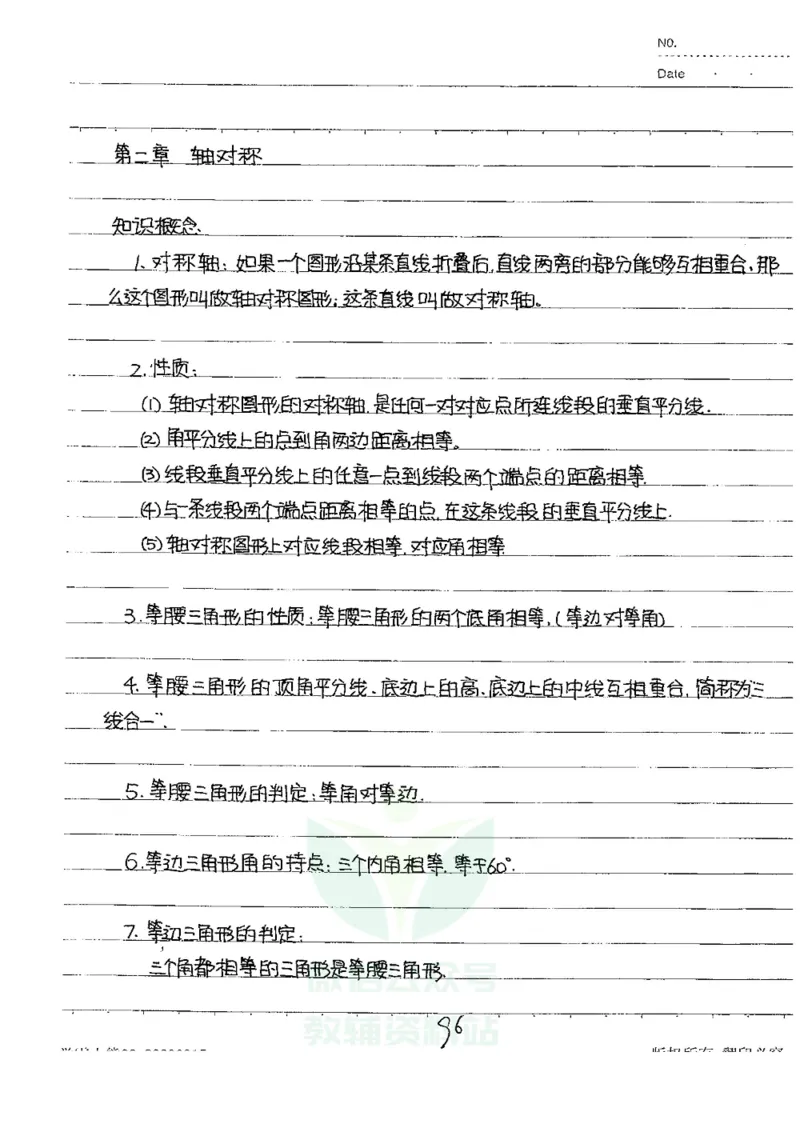 NO.
Date
第二章 轴对称
知识概念、
1、对称轴：如果一个图形沿某条直线折叠后，直线两旁的部分能够互相重合，那
么这个图形叫做轴对称图形；这条直线叫做对称轴。
2.性质：
(1) 轴对称图形的对称轴，是任何一对对应点所连线段的垂直平分线．
(2) 角平分线上的点到角两边距离相等。
(3) 线段垂直平分线上的任意一点到线段两个端点的距离相等．
(4)与一条线段两个端点距离相等的点，在这条线段的垂直平分线上．
(5) 轴对称图形上对应线段相等，对应角相等
3.等腰三角形的性质：等腰三角形的两个底角相等，(等边对等角)
4.等腰三角形的顶角平分线、底边上的高、底边上的中线互相重合，简称为“三
线合一”．
5.等腰三角形的判定：等角对等边．
6.等边三角形角的特点：三个内角相等，等于60°．
7. 等边三角形的判定：
三个角都相等的三角形是等腰三角形．
微信公众号
教辅资料站
96